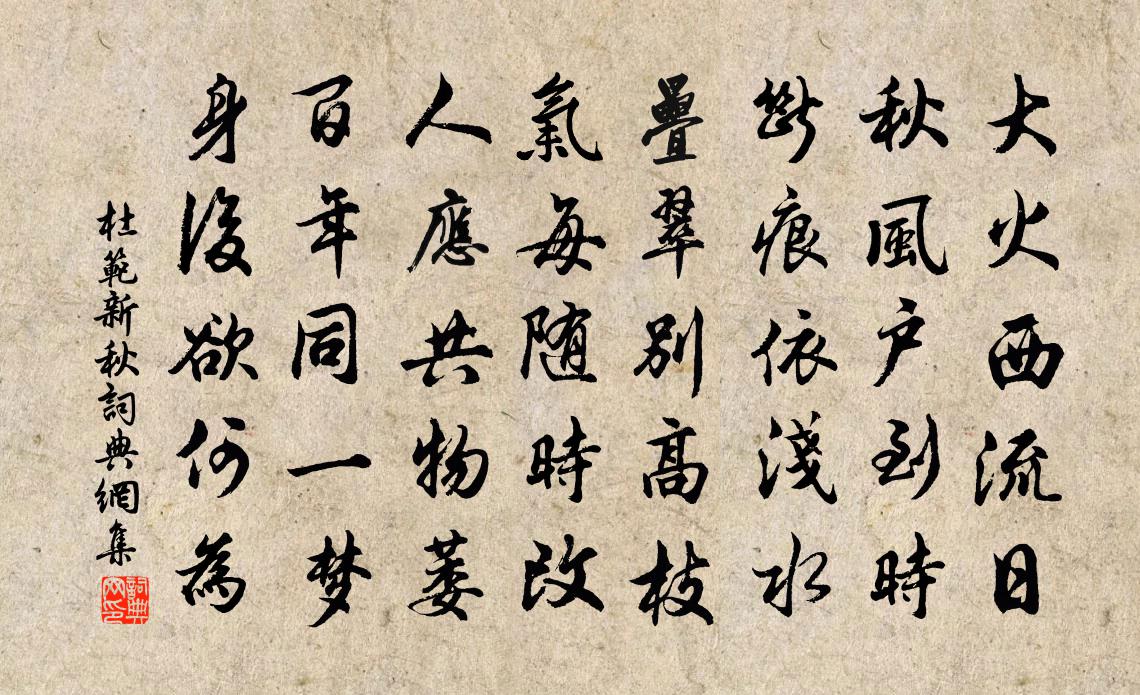 大火西流日
秋風户到時
斷痕依淺水
疊翠别高枝
氣每随時改
人應共物萎
百年同一梦
身後欲何為
杜範新秋詞典網集
詞典网印